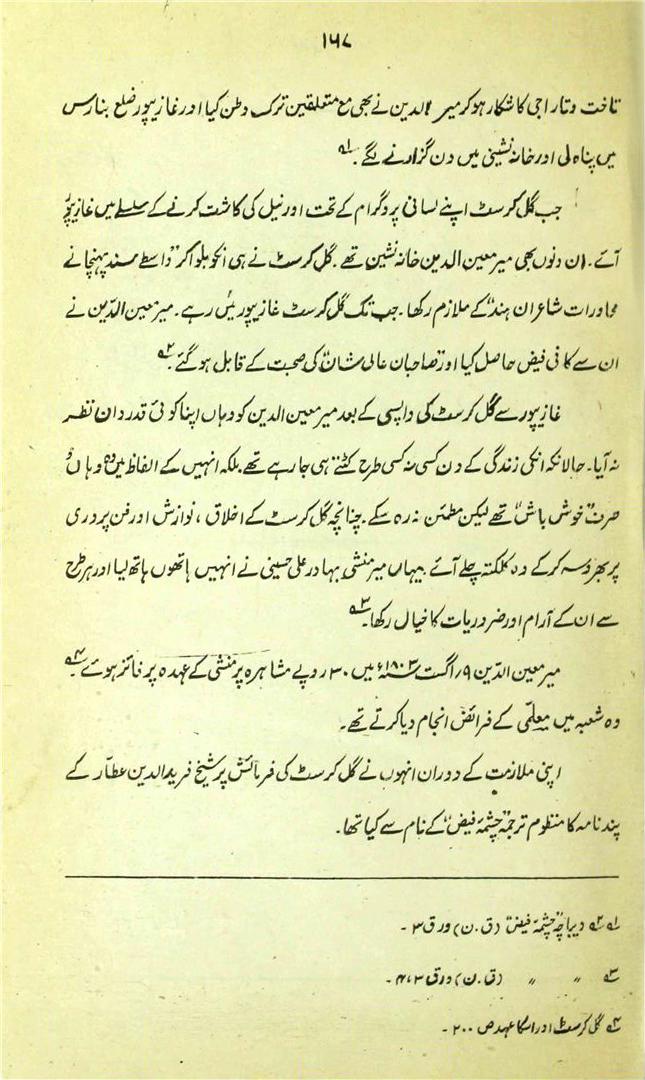 ۱۶۷
تاخت و تاراجی کا شکار ہو کر میر الدین نے بھی مع متعلقین ترک وطن کیا اور غازیپور ضلع بنارس
میں پناہ لی اور خانہ نشینی میں دن گزارنے لگے۔؎۱
جب گل کرسٹ اپنے لسانی پروگرام کے تحت اور نیل کی کاشت کرنے کے سلسلے میں غازیپور
آئے۔ ان دنوں بھی میر معین الدین خانہ نشین تھے۔ گل کرسٹ نے ہی انکو بلوا کر "واسطے سند پہنچانے
محاورات شاعران ہند" کے ملازم رکھا۔ جب تک گل کرسٹ غازیپور میں رہے۔ میر معین الدّین نے
ان سے کافی فیض حاصل کیا اور "صاحبان عالی شان" کی صحبت کے قابل ہو گئے۔؎۲
غازیپور سے گل کرسٹ کی واپسی کے بعد میر معین الدین کو وہاں اپنا کوئی قدردان نظر
نہ آیا۔ حالانکہ انکی زندگی کے دن کسی نہ کسی طرح کٹتے ہی جا رہے تھے۔ بلکہ انہیں کے الفاظ میں وہ وہاں
صرف "خوش باش" تھے لیکن مطمئن نہ رہ سکے۔ چنانچہ گل کرسٹ کے اخلاق، نوازش اور فن پروری
پر بھروسہ کر کے وہ کلکتہ چلے آئے۔ یہاں میر منشی بہادر علی حسینی نے انہیں ہاتھوں ہاتھ لیا اور ہر طرح
سے ان کے آرام اور ضروریات کا خیال رکھا۔؎۳
میر معین الدّین ۹/اگست ۱۸۰۳ء میں ۳۰ روپے مشاہرہ پر منشی کے عہدہ پر فائز ہوئے؎۴
وہ شعبہ میں معلّمی کے فرائض انجام دیا کرتے تھے۔
اپنی ملازمت کے دوران انہوں نے گل کرسٹ کی فرمائش پر شیخ فرید الدین عطّار کے
پند نامہ کا منظوم ترجمہ "چشمۂ فیض" کے نام سے کیا تھا۔
؎۱ ؎۲ دیباچہ "چشمۂ فیض" (ق.ن) ورق ۳ ۔
؎۳ " " (ق.ن) ورق ۳، ۴ ۔
؎۴ گل کرسٹ اور اسکا عہد ص ۲۰۰ ۔